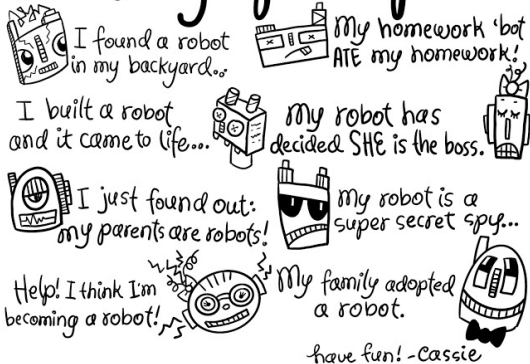 I found a robot
in my backyard...
My homework 'bot
ATE my homework!
I built a robot
and it came to life...
My robot has
decided SHE is the boss.
I just found out:
my parents are robots!
My robot is a
super secret spy...
Help! I think I'm
becoming a robot!
My family adopted
a robot.
have fun! -Cassie